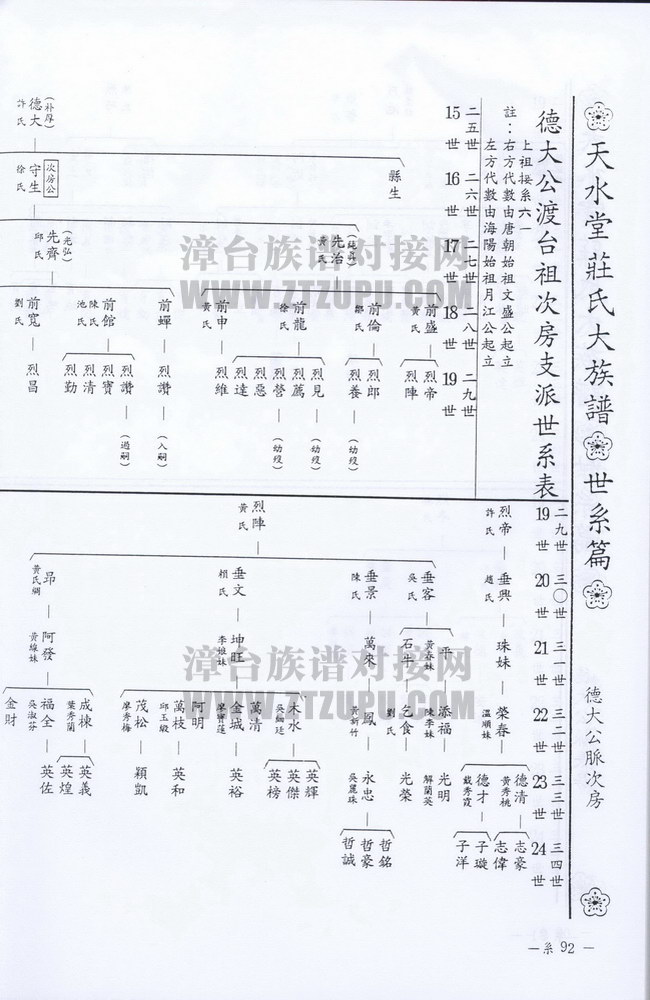 天水堂莊氏大族譜 世系篇
德大公脈次房
德大公渡台祖次房支派世系表
上祖接系六一
註：右方代數由唐朝始祖文盛公起立
左方代數由海陽始祖月江公起立
二五世 二六世 二七世 二八世 二九世
15世 16世 17世 18世 19世
德大 (朴厚) 許氏
縣生
次房公 守生 徐氏
先治 (純真) 黃氏
先齊 (光弘) 邱氏
前盛 黃氏
前倫 鄒氏
前龍 徐氏
前申 黃氏
前蟬
前館 陳氏 池氏
前寬 劉氏
烈帝
烈陣
烈郎
烈養 (幼歿)
烈見 (幼歿)
烈萬
烈營 (幼歿)
烈惡
烈達
烈維
烈讚 (入嗣)
烈讚 (過嗣)
烈寶
烈清
烈勤
烈昌
二九世 三〇世 三一世 三二世 三三世 三四世
19世 20世 21世 22世 23世 24世
烈帝 許氏
垂興 趙氏
珠妹
榮春 溫順妹
德清 黃秀桃
德才 戴秀霞
志豪
志偉
子璇
子洋
烈陣 黃氏
垂客 吳氏
垂景 陳氏
垂文 賴氏
昴 黃氏綢
平 黃春妹
石牛
萬來
坤旺 李雄妹
阿發 黃線妹
添福 陳李妹
乞食 劉氏
鳳 黃新竹
木水
萬清
金城 廖寶蓮
阿明
萬枝 邱玉緞
茂松 廖秀梅
成棟 葉秀蘭
福全 吳淑芬
金財
光明 解蘭英
光榮
永忠 吳麗珠
英輝
英傑
英榜
英裕
英和
穎凱
英義
英煌
英佐
哲銘
哲豪
哲誠
—系 92 —
漳台族谱对接网
WWW.ZTZUPU.COM
漳台族谱对接网
WWW.ZTZUPU.COM